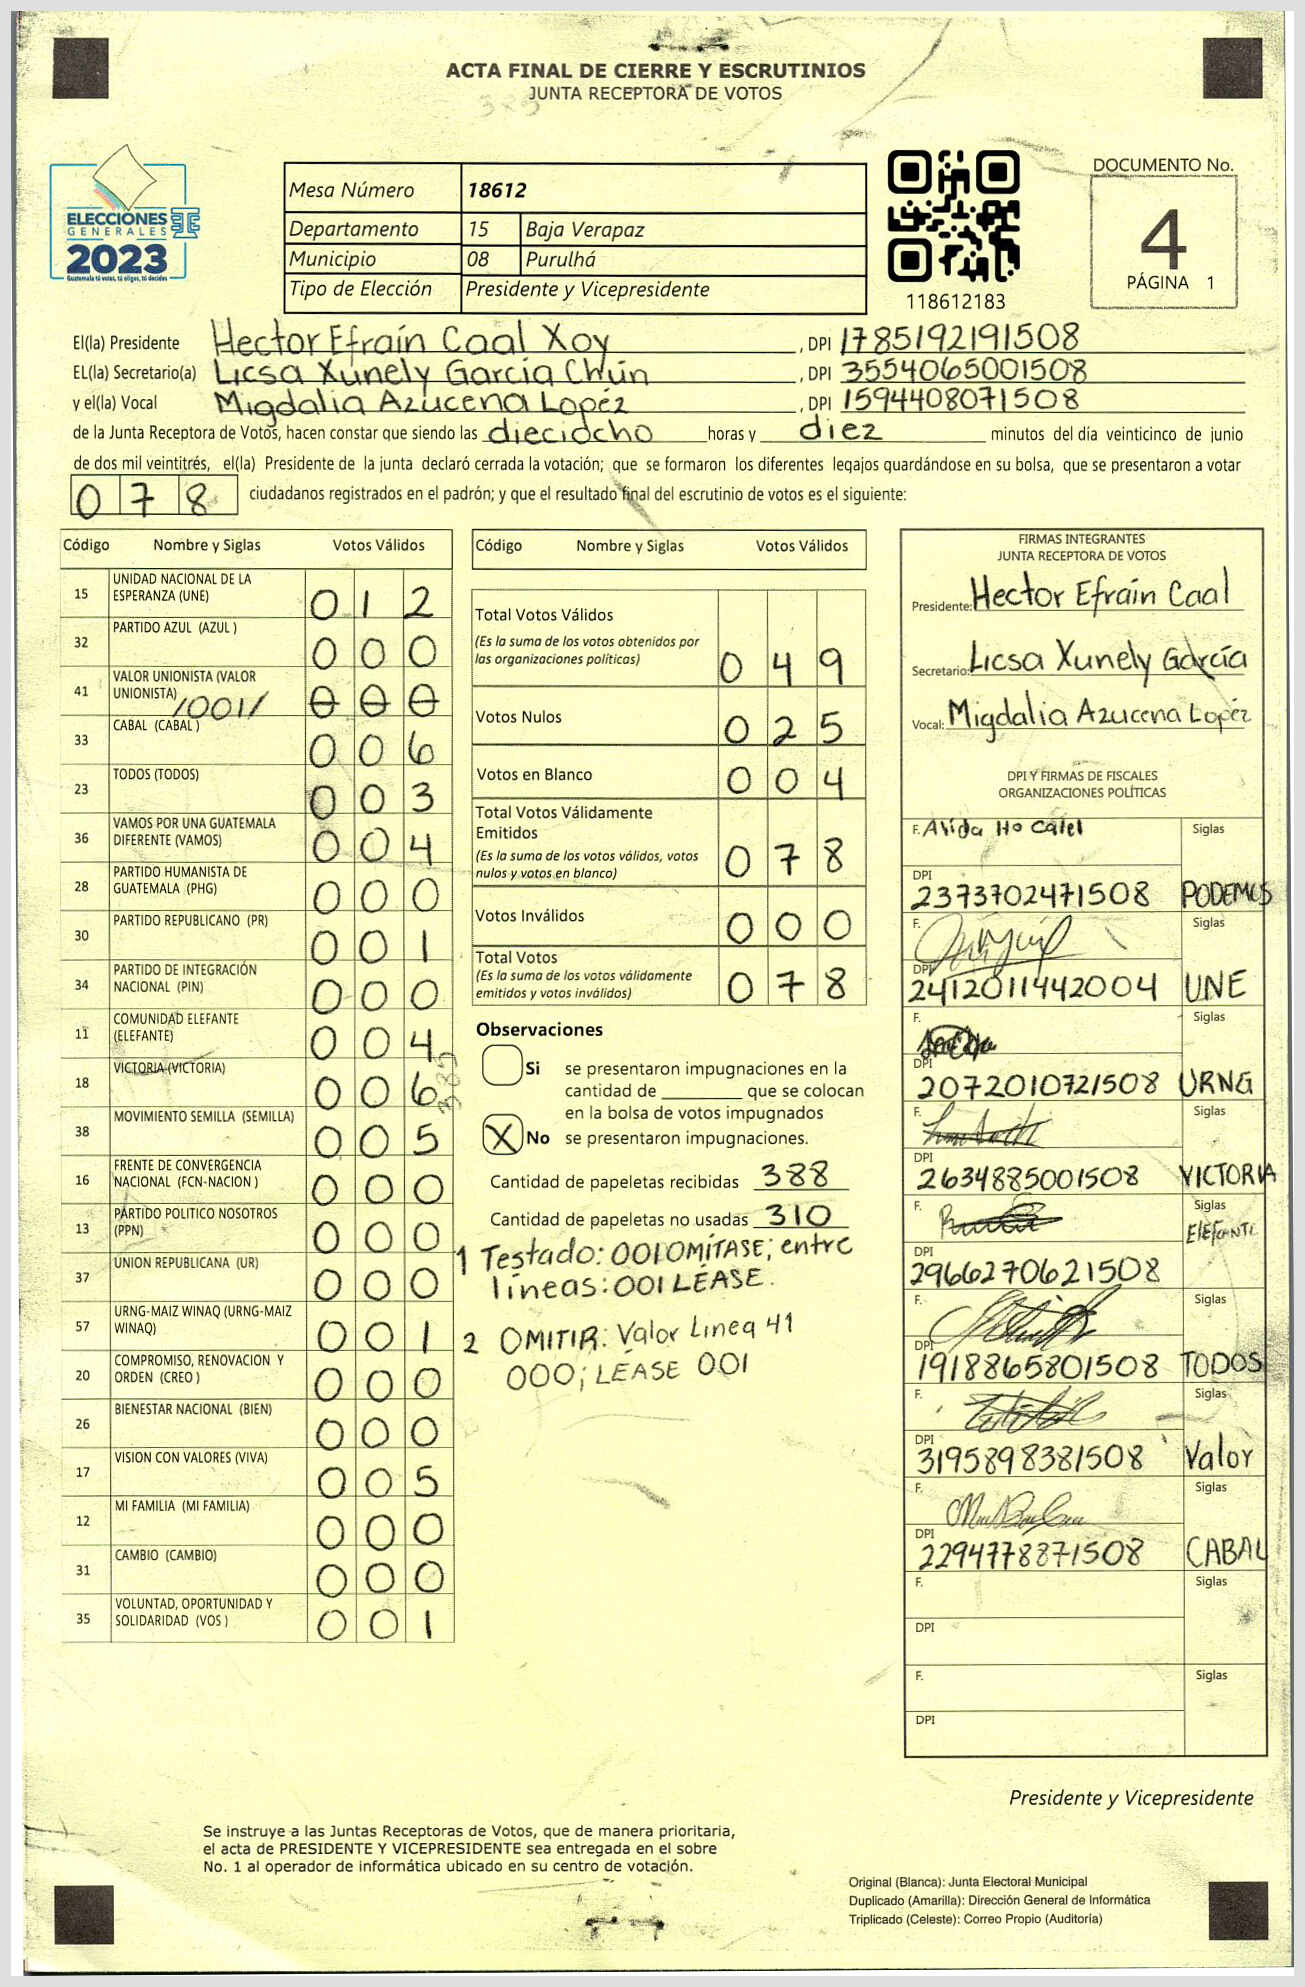 ACTA FINAL DE CIERRE Y ESCRUTINIOS
JUNTA RECEPTORA DE VOTOS
ELECCIONES
GENERALES
2023
Guatemala tú votas, tú eliges, tú decides
Mesa Número 18612
Departamento 15 Baja Verapaz
Municipio 08 Purulhá
Tipo de Elección Presidente y Vicepresidente
118612183
DOCUMENTO No.
4
PÁGINA 1
El(la) Presidente Hector Efraín Caal Xoy, DPI 1785192191508
EL(la) Secretario(a) Licsa Xunely García Chún, DPI 3554065001508
y el(la) Vocal Migdalia Azucena Lopéz, DPI 1594408071508
de la Junta Receptora de Votos, hacen constar que siendo las dieciocho horas y diez minutos del día veinticinco de junio
de dos mil veintitrés, el(la) Presidente de la junta declaró cerrada la votación; que se formaron los diferentes legajos guardándose en su bolsa, que se presentaron a votar
078 ciudadanos registrados en el padrón; y que el resultado final del escrutinio de votos es el siguiente:
Código Nombre y Siglas Votos Válidos
15 UNIDAD NACIONAL DE LA ESPERANZA (UNE) 012
32 PARTIDO AZUL (AZUL ) 000
41 VALOR UNIONISTA (VALOR UNIONISTA) /001/ 000
33 CABAL (CABAL ) 006
23 TODOS (TODOS) 003
36 VAMOS POR UNA GUATEMALA DIFERENTE (VAMOS) 004
28 PARTIDO HUMANISTA DE GUATEMALA (PHG) 000
30 PARTIDO REPUBLICANO (PR) 001
34 PARTIDO DE INTEGRACIÓN NACIONAL (PIN) 000
11 COMUNIDAD ELEFANTE (ELEFANTE) 004
18 VICTORIA (VICTORIA) 006
38 MOVIMIENTO SEMILLA (SEMILLA) 005
16 FRENTE DE CONVERGENCIA NACIONAL (FCN-NACION ) 000
13 PARTIDO POLITICO NOSOTROS (PPN) 000
37 UNION REPUBLICANA (UR) 000
57 URNG-MAIZ WINAQ (URNG-MAIZ WINAQ) 001
20 COMPROMISO, RENOVACION Y ORDEN (CREO ) 000
26 BIENESTAR NACIONAL (BIEN) 000
17 VISION CON VALORES (VIVA) 005
12 MI FAMILIA (MI FAMILIA) 000
31 CAMBIO (CAMBIO) 000
35 VOLUNTAD, OPORTUNIDAD Y SOLIDARIDAD (VOS ) 001
Código Nombre y Siglas Votos Válidos
Total Votos Válidos
(Es la suma de los votos obtenidos por
las organizaciones políticas) 049
Votos Nulos 025
Votos en Blanco 004
Total Votos Válidamente
Emitidos
(Es la suma de los votos válidos, votos
nulos y votos en blanco) 078
Votos Inválidos 000
Total Votos
(Es la suma de los votos válidamente
emitidos y votos inválidos) 078
Observaciones
Si se presentaron impugnaciones en la
cantidad de ________ que se colocan
en la bolsa de votos impugnados
X No se presentaron impugnaciones.
Cantidad de papeletas recibidas 388
Cantidad de papeletas no usadas 310
1 Testado: 001 OMÍTASE; entre
líneas: 001 LÉASE.
2 OMITIR: Valor Linea 41
000; LEASE 001
FIRMAS INTEGRANTES
JUNTA RECEPTORA DE VOTOS
Presidente: Hector Efraín Caal
Secretario: Licsa Xunely García
Vocal: Migdalia Azucena Lopéz
DPI Y FIRMAS DE FISCALES
ORGANIZACIONES POLÍTICAS
F. Siglas
DPI
2373702471508 PODEMOS
F. Siglas
DPI
2412011442004 UNE
F. Siglas
DPI
2072010721508 URNG
F. Siglas
DPI
2634885001508 VICTORIA
F. Siglas
ELEFANTE
DPI
2966270621508
F. Siglas
DPI
1918865801508 TODOS
F. Siglas
DPI
3195898381508 Valor
F. Siglas
DPI
2294778871508 CABAL
F. Siglas
DPI
F. Siglas
DPI
Presidente y Vicepresidente
Se instruye a las Juntas Receptoras de Votos, que de manera prioritaria,
el acta de PRESIDENTE Y VICEPRESIDENTE sea entregada en el sobre
No. 1 al operador de informática ubicado en su centro de votación.
Original (Blanca): Junta Electoral Municipal
Duplicado (Amarilla): Dirección General de Informática
Triplicado (Celeste): Correo Propio (Auditoría)